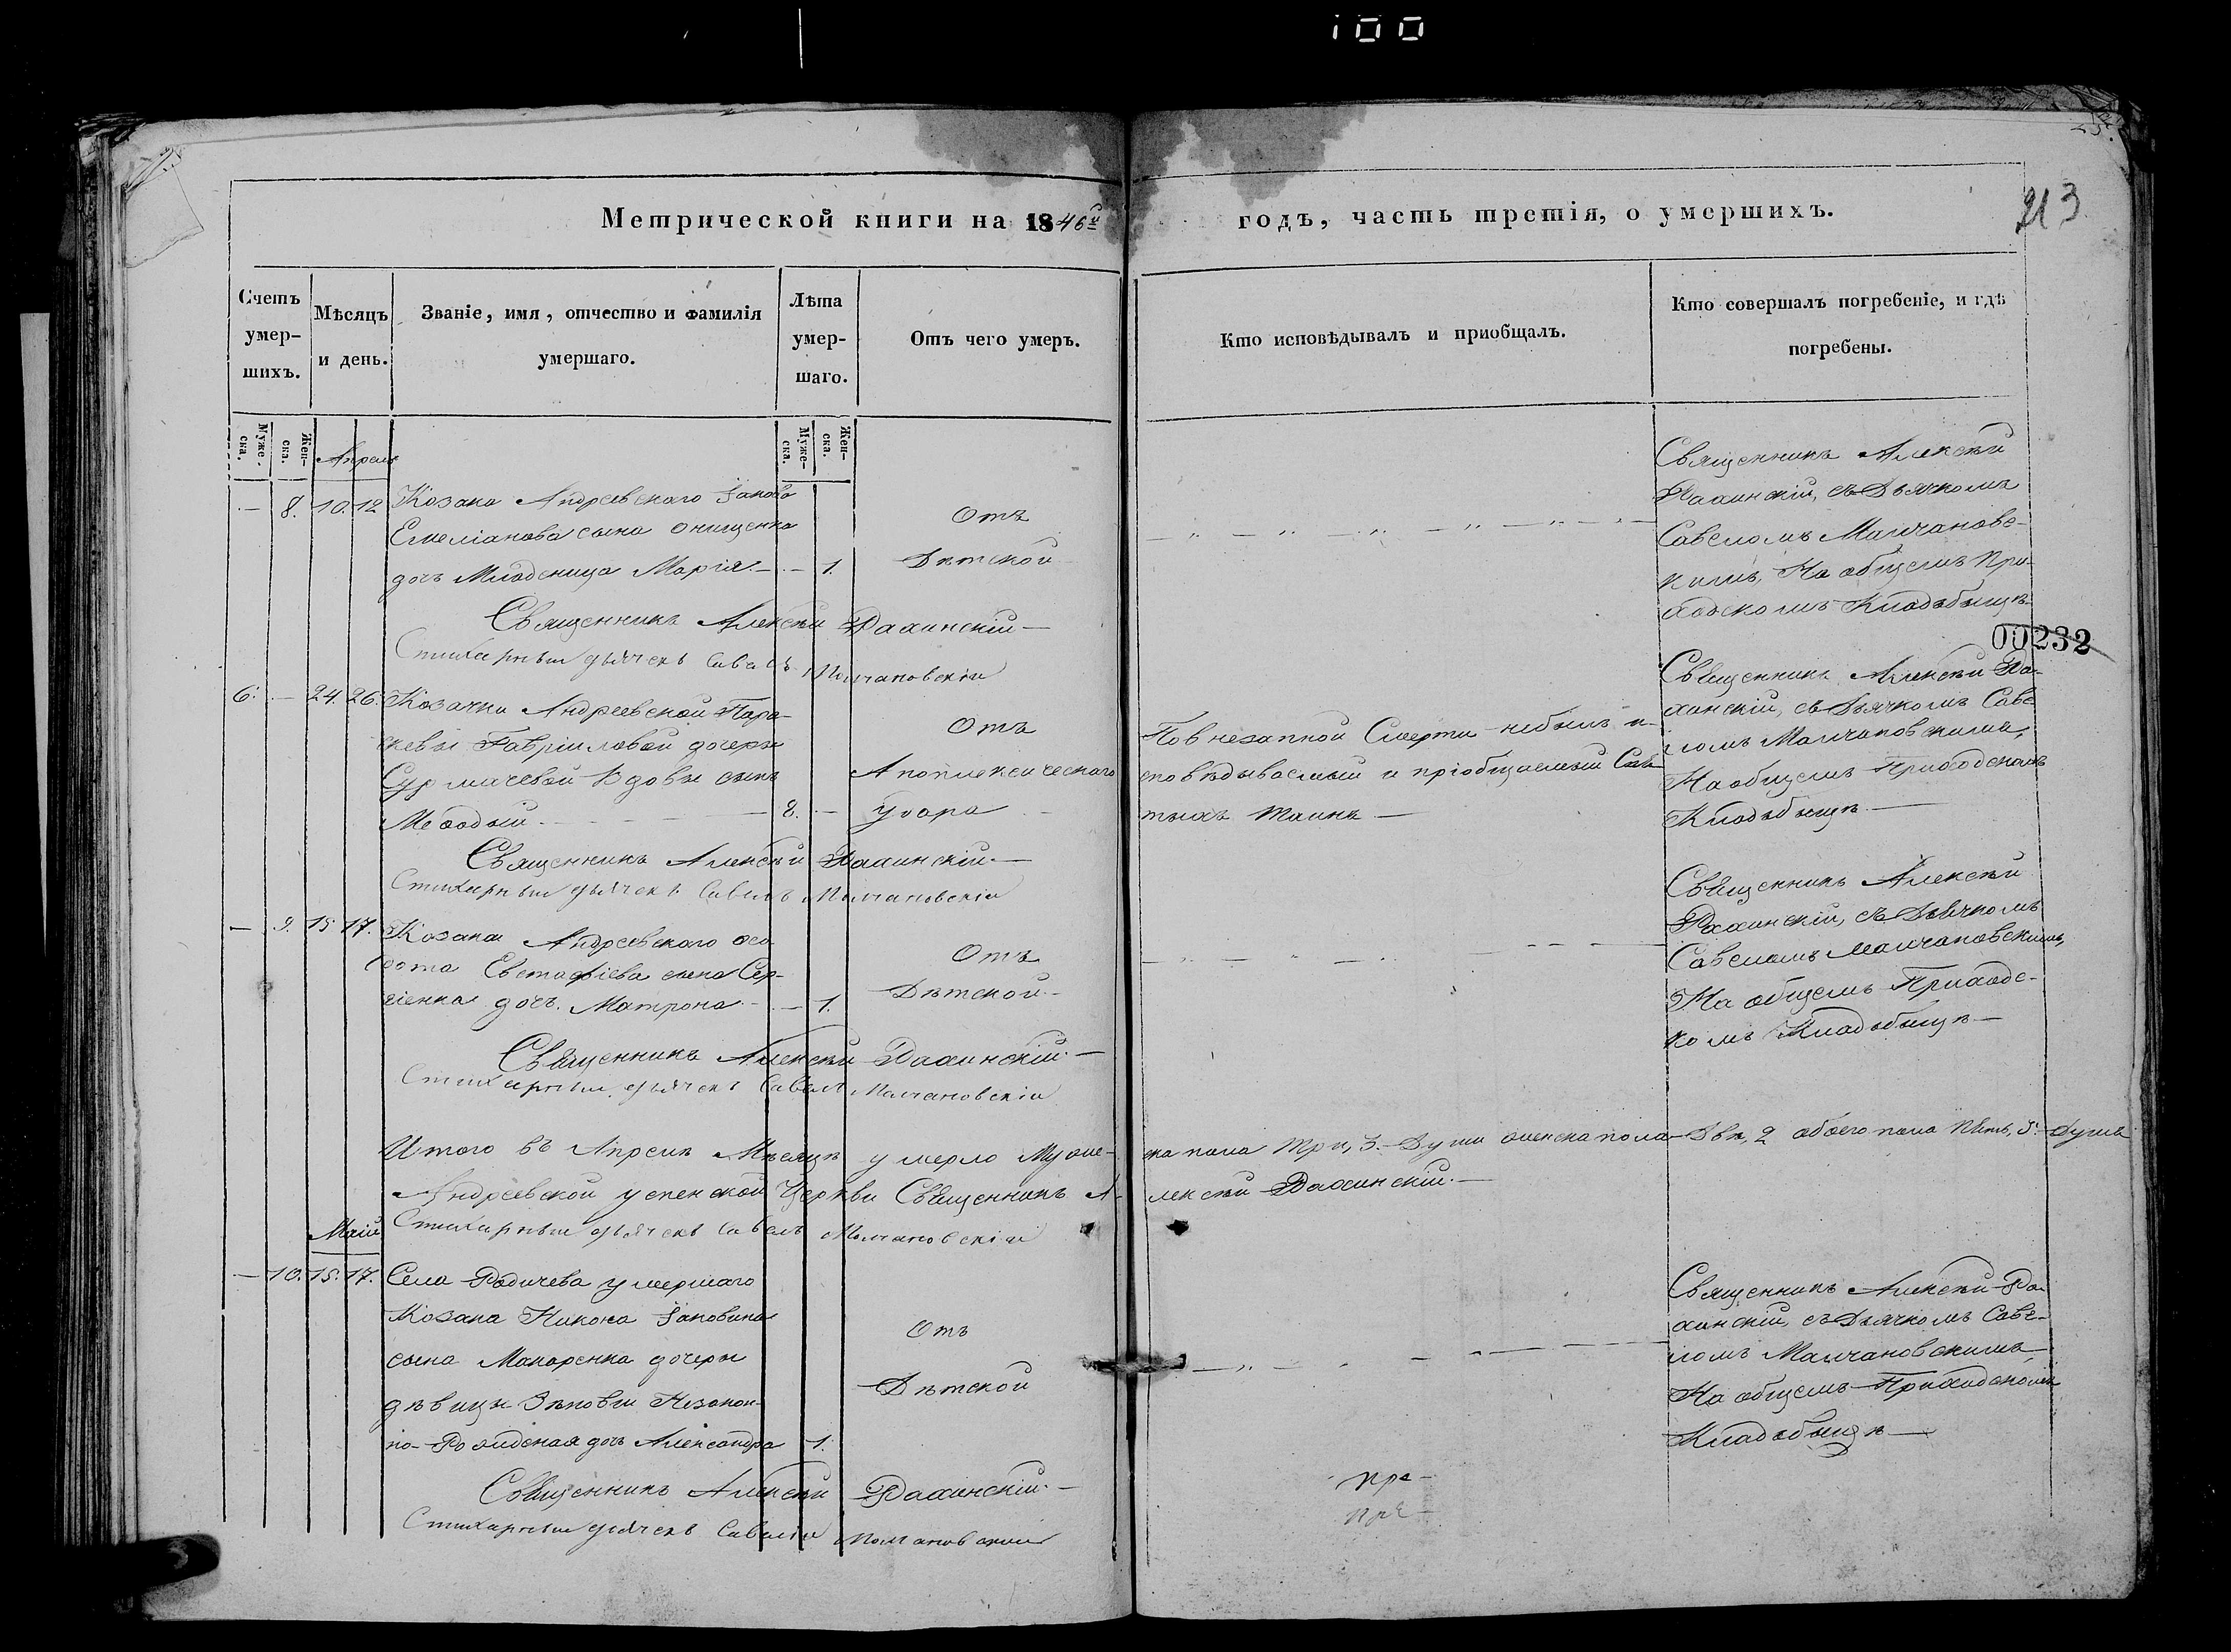 100
213
Метрической книги на 1846й годъ, часть третія, о умершихъ.
Счетъ умер-
шихъ.
Мѣсяцъ
и день.
Званіе, имя, отчество и фамилія
умершаго.
Лѣта
умер-
шаго.
Отъ чего умеръ.
Кто исповѣдывалъ и приобщалъ.
Кто совершалъ погребеніе, и гдѣ
погребены.
Муже-
ска.
Жен-
ска.
Муже-
ска.
Жен-
ска.
Апрель
— 8. 10. 12 Козака Андреевскаго Іакова
Емеліанова сына Онищенка
дочь Младеница Марія. — 1.
Отъ
Дѣтской
Священникъ Алексѣй
Рахинскій, съ Дьячкомъ
Савеломъ Малчановс-
кимъ, На общемъ При-
ходскомъ Кладбыщѣ
Священникъ Алексѣй Рахинскій —
Стихарный дьячекъ Савелъ Молчановскій
00232
6. — 24. 26. Козачки Андреевской Пара-
скевы Гавріиловой дочеры
Сурмачевой Вдовы сынъ
Меѳодій — 8. —
Отъ
Апоплексическаго
удара
По внезапной Смерти небылъ и-
сповѣдываемый и пріобщаемый Свя-
тыхъ Таинъ —
Священникъ Алексѣй Ра-
хинскій, съ Дьячкомъ Саве-
ломъ Малчановскимъ,
На общемъ Приходскомъ
Кладбыщѣ —
Священникъ Алексѣй Рахинскій. —
Стихарный дьячекъ Савелъ Молчановскій
— 9. 15 17. Козака Андреевскаго Ѳео-
дота Евстафіева сына Сер-
гіенка дочь Матрона — 1.
Отъ
Дѣтской —
Священникъ Алексѣй
Рахинскій, съ Дьячкомъ
Савеломъ Малчановскимъ,
На общемъ Приходс-
комъ Кладбыщѣ —
Священникъ Алексѣй Рахинскій. —
Стихарный дьячекъ Савелъ Молчановскій
Итого въ Апрелѣ Мѣсяцѣ умерло Муже- ска пола Три, 3. Души женска пола Двѣ, 2 обоего пола Пять, 5. Душъ
Андреевской Успенской Церкви Священникъ А- лексѣй Рахинскій. —
Стихарный дьячекъ Савелъ Молчановскій
Маій
— 10. 15. 17. Села Радичева умершаго
Козака Никона Іаковина
сына Макаренка дочеры
дѣвицы Зѣновіи Незакон-
но-Рожденая дочь Александра 1.
Отъ
Дѣтской
Священникъ Алексѣй Ра-
хинскій, съ Дьячкомъ Саве-
ломъ Малчановскимъ
На общемъ Приходскомъ
Кладбыщѣ —
Священникъ Алексѣй Рахинскій. —
Стихарный дьячекъ Савелій Молчановский
пре-
пре-